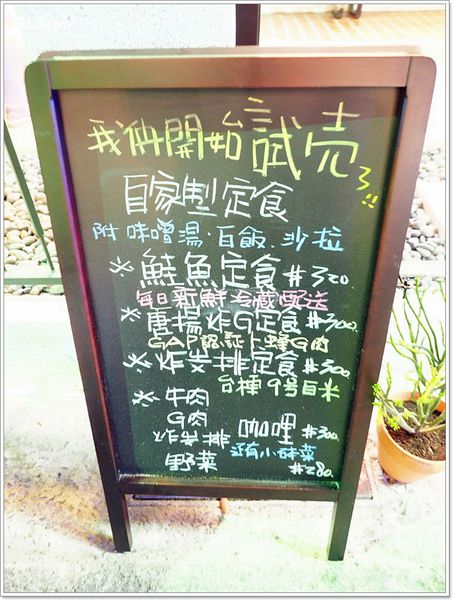 我们開始試売ろ!!
自家製定食
附 味噌湯.白飯.沙拉
※ 鮭魚定食 #320
每日新鮮冷藏配送
※ 唐揚炸G定食 #300
GAP認証卜蜂G肉
※ 炸羊排定食 #300
台梗9号白米
※ 牛肉
G肉 咖哩 #300
炸羊排 还有小砵菜
野菜 #280